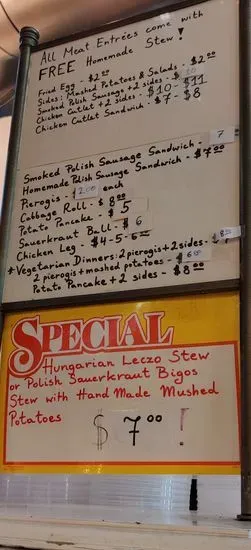 All Meat Entrées come with
FREE Homemade Stew!
Fried Egg - $2.00
Sides: Mashed Potatoes & Salads - $2.00
Smoked Polish Sausage + 2 sides - $
Chicken Cutlet + 2 sides - $10 - $11
Chicken Cutlet Sandwich - $7 - $8
Smoked Polish Sausage Sandwich - 7
Homemade Polish Sausage Sandwich - $7.00
Pierogis - $2.00 each
Cabbage Roll - $8.00
Potato Pancake - $5
Sauerkraut Ball - $6
Chicken Leg - $4-5-6.00
*Vegetarian Dinners: 2 pierogis + 2 sides -
2 pierogis + mashed potatoes - $6.00
Potato Pancake + 2 sides - $8.00
SPECIAL
Hungarian Leczo Stew
or Polish Sauerkraut Bigos
Stew with Hand Made Mushed
Potatoes
$7.00!